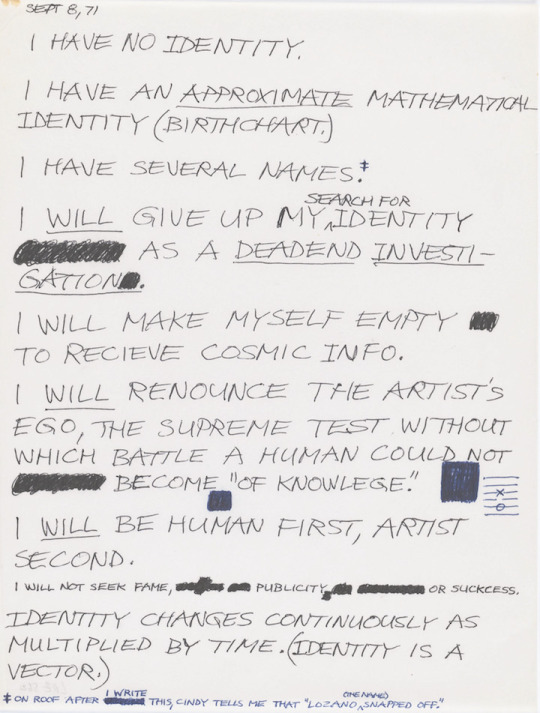 SEPT 8, 71
I HAVE NO IDENTITY.
I HAVE AN APPROXIMATE MATHEMATICAL
IDENTITY (BIRTHCHART.)
I HAVE SEVERAL NAMES.‡
SEARCH FOR
I WILL GIVE UP MY ^ IDENTITY
AS A DEADEND INVESTI-
GATION.
I WILL MAKE MYSELF EMPTY
TO RECIEVE COSMIC INFO.
I WILL RENOUNCE THE ARTIST'S
EGO, THE SUPREME TEST WITHOUT
WHICH BATTLE A HUMAN COULD NOT
BECOME "OF KNOWLEGE."
X
O
I WILL BE HUMAN FIRST, ARTIST
SECOND.
I WILL NOT SEEK FAME, PUBLICITY OR SUCKCESS.
IDENTITY CHANGES CONTINUOUSLY AS
MULTIPLIED BY TIME. (IDENTITY IS A
VECTOR.)
I WRITE (ME NAME)
‡ ON ROOF AFTER THIS, CINDY TELLS ME THAT "LOZANO ^ SNAPPED OFF."